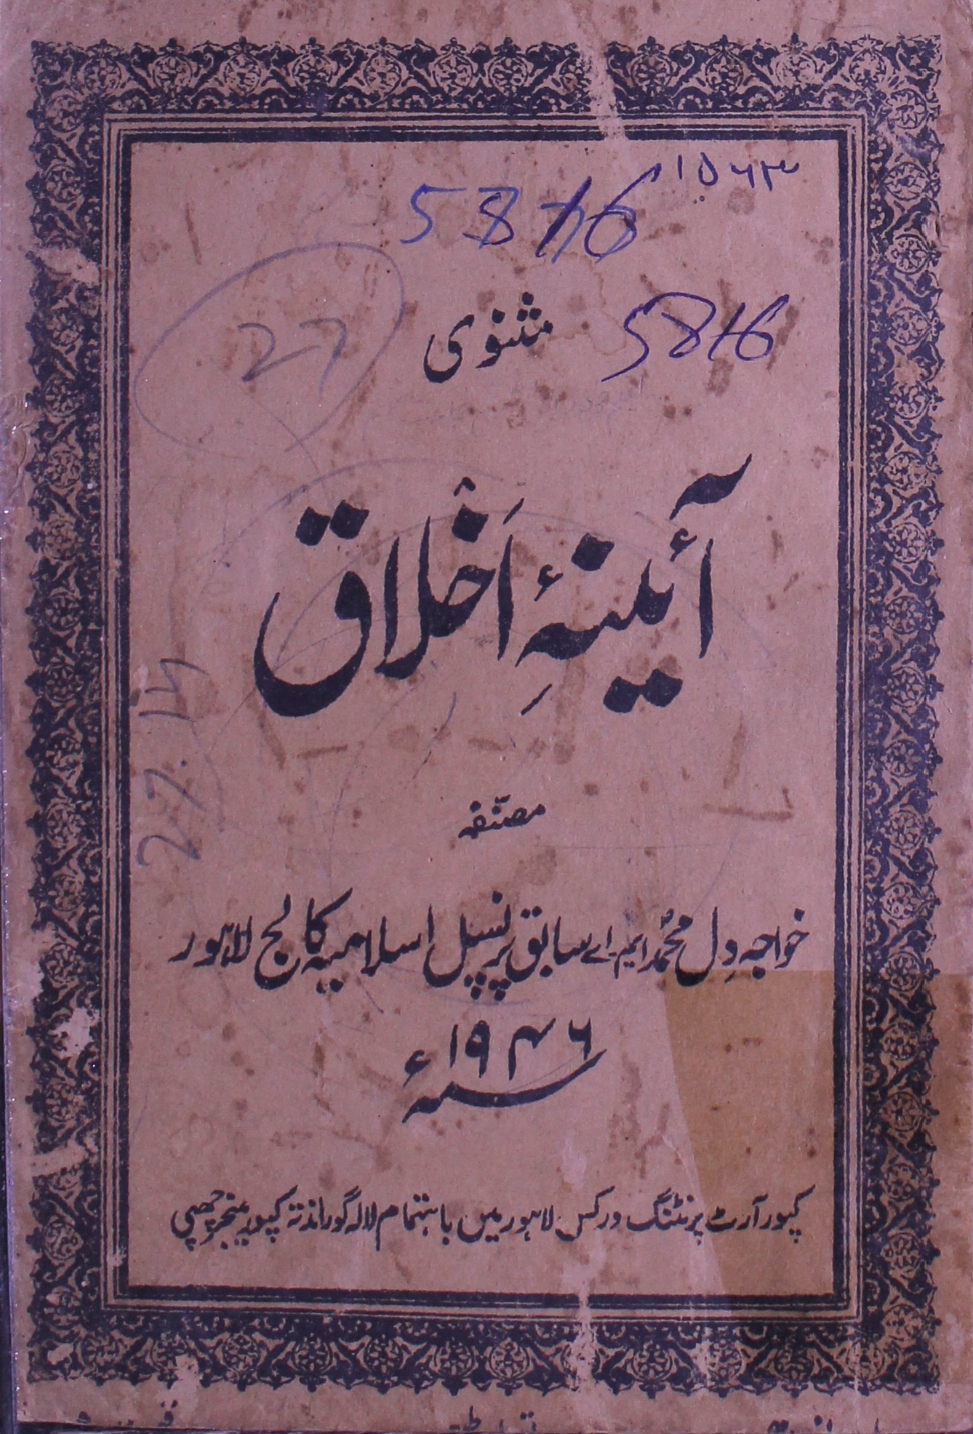 ۱۵۶۳
5816
5816
27
مثنوی
آئینۂ اخلاق
27.14
مصنّفہ
خواجہ دِل محمدؐ ایم۔اے سابق پرنسپل اسلامیہ کالج لاہور
۱۹۴۶ سنہء
کپور آرٹ پرنٹنگ ورکس لاہور میں باہتمام لالہ گوراندتہ کپور مینجر چھپی